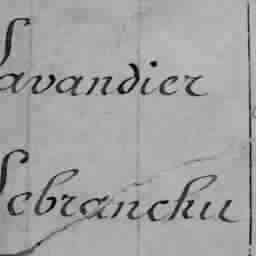 Lavandier
Lebranchu